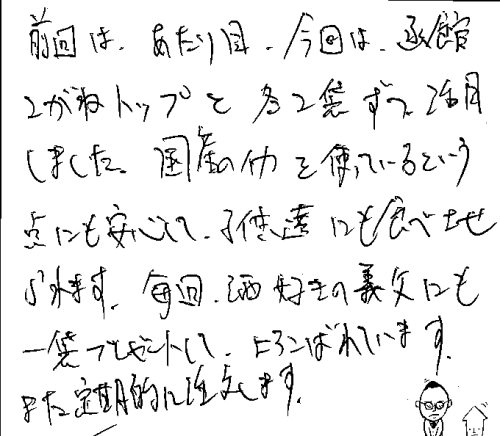 前回は、あたり目、今回は、函館
こがねトップと各2袋ずつ、注文
しました。国産のイカを使っているという
点にも安心して、子供達にも食べさせ
られます。毎回、酒好きの義父にも
一袋プレゼントして、よろこばれています。
また定期的に注文します。